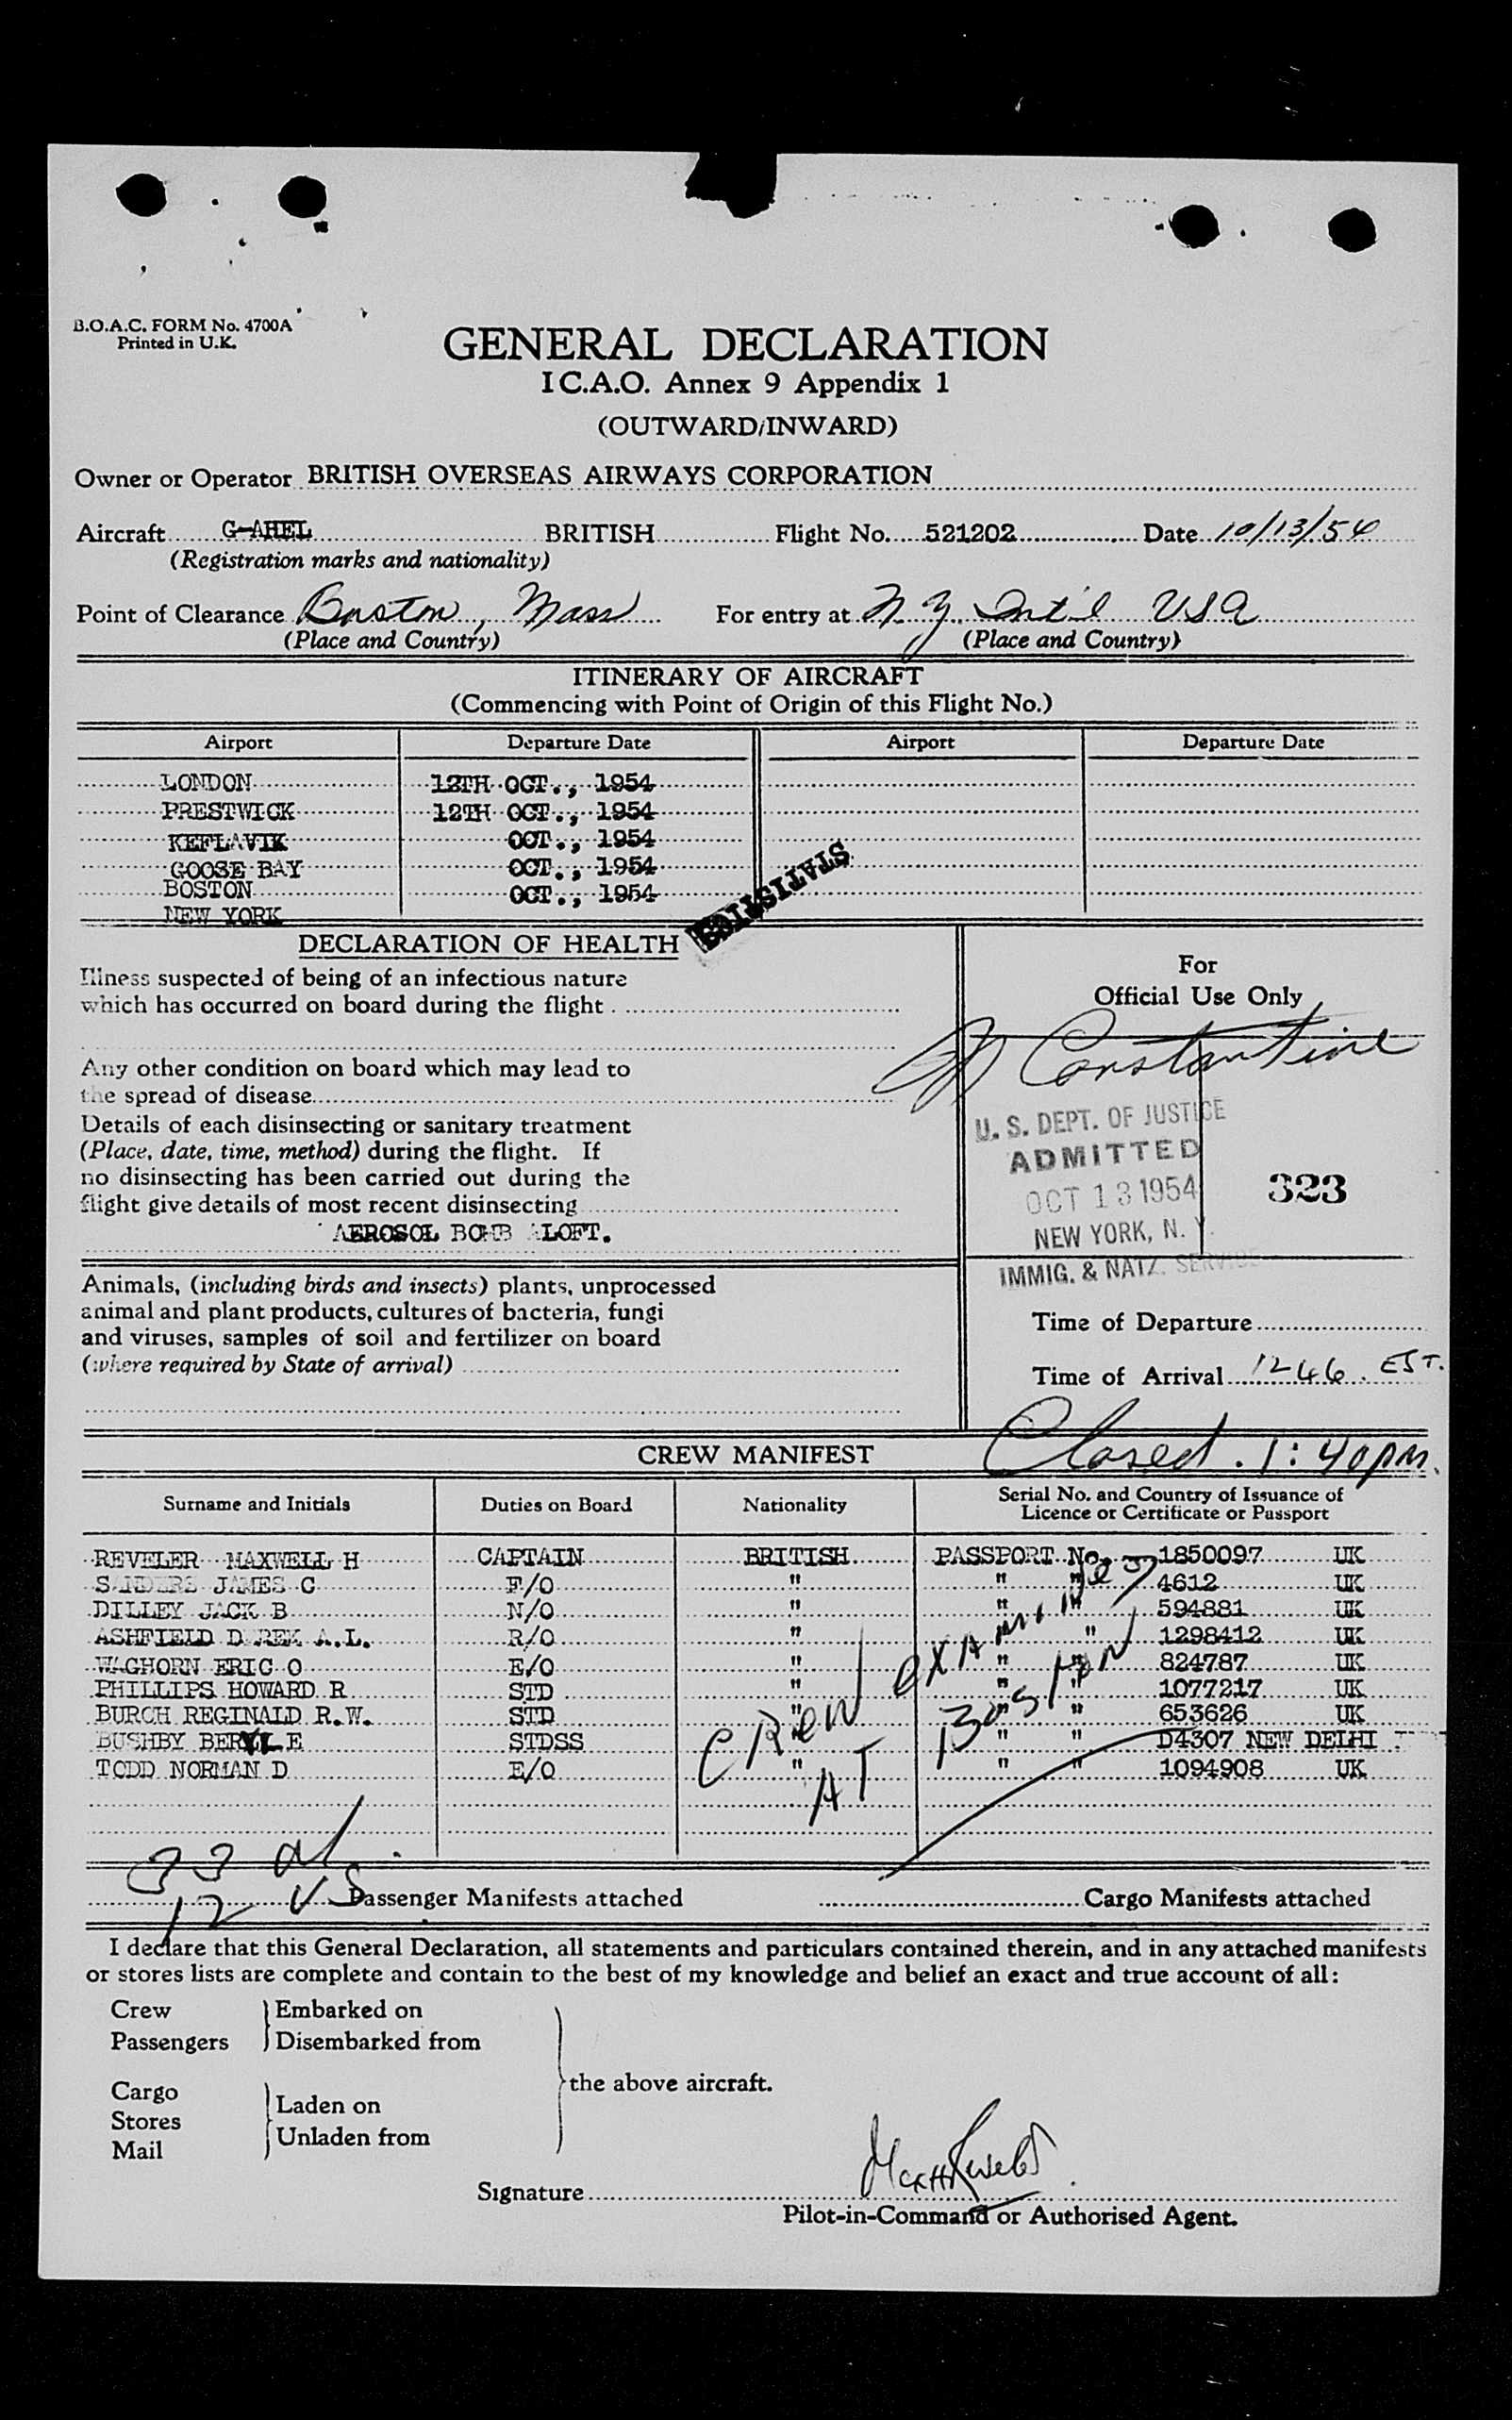 B.O.A.C. FORM No. 4700A
Printed in U.K.
GENERAL DECLARATION
I C.A.O. Annex 9 Appendix 1
(OUTWARD/INWARD)
Owner or Operator BRITISH OVERSEAS AIRWAYS CORPORATION
Aircraft G-AHEL BRITISH Flight No. 521202 Date 10/13/54
(Registration marks and nationality)
Point of Clearance Boston, Mass For entry at N.Y. Int'l USA
(Place and Country) (Place and Country)
ITINERARY OF AIRCRAFT
(Commencing with Point of Origin of this Flight No.)
Airport Departure Date Airport Departure Date
LONDON 12TH OCT., 1954
PRESTWICK 12TH OCT., 1954
KEFLAVIK OCT., 1954
GOOSE BAY OCT., 1954
BOSTON OCT., 1954
NEW YORK
STATISTICS
DECLARATION OF HEALTH
Illness suspected of being of an infectious nature
which has occurred on board during the flight
Any other condition on board which may lead to
the spread of disease
Details of each disinsecting or sanitary treatment
(Place, date, time, method) during the flight. If
no disinsecting has been carried out during the
flight give details of most recent disinsecting
AEROSOL BOMB ALOFT.
Animals, (including birds and insects) plants, unprocessed
animal and plant products, cultures of bacteria, fungi
and viruses, samples of soil and fertilizer on board
(where required by State of arrival)
For
Official Use Only
Constantine
U. S. DEPT. OF JUSTICE
ADMITTED
OCT 13 1954
NEW YORK, N. Y.
IMMIG. & NATZ. SERVICE
323
Time of Departure
Time of Arrival 1246 EST.
Closed. 1:40 pm.
CREW MANIFEST
Surname and Initials Duties on Board Nationality Serial No. and Country of Issuance of
Licence or Certificate or Passport
REVELER MAXWELL H CAPTAIN BRITISH PASSPORT No. 1850097 UK
SANDERS JAMES C F/O " " " 4612 UK
DILLEY JACK B N/O " " " 594881 UK
ASHFIELD DEREK A.L. R/O " " 1298412 UK
WAGHORN ERIC O E/O " " " 824787 UK
PHILLIPS HOWARD R STD " " " 1077217 UK
BURCH REGINALD R.W. STD " " " 653626 UK
BUSHBY BERYL E STDSS " " " D4307 NEW DELHI
TODD NORMAN D E/O " " " 1094908 UK
Crew examined
AT Boston
33 al
12 US Passenger Manifests attached Cargo Manifests attached
I declare that this General Declaration, all statements and particulars contained therein, and in any attached manifests
or stores lists are complete and contain to the best of my knowledge and belief an exact and true account of all:
Crew Embarked on
Passengers Disembarked from
the above aircraft.
Cargo
Stores Laden on
Mail Unladen from
Signature
Pilot-in-Command or Authorised Agent.